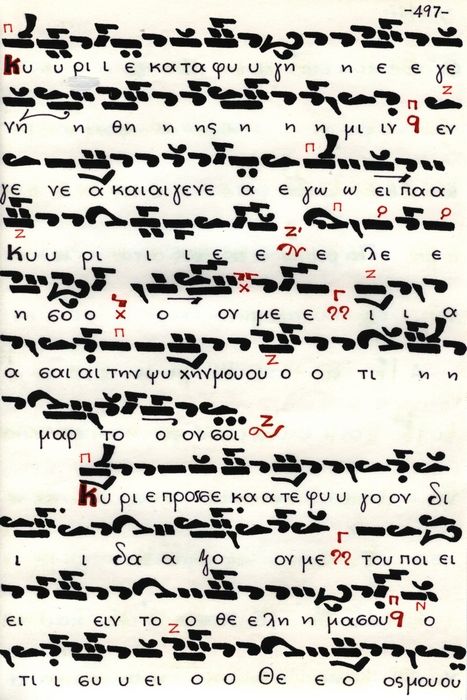 -497-
Κυ υ ρι ι ε κατα φυ υ γη η ε ε γε
νη η θη η ης η η η μι ιν εν
γε νε α και αι γε νε α ε γω ω ει πα α
Κυ υ ρι ι ι ε ε λε ε
η σο ο ο ον με ε ι ι α
α σαι αι την ψυ χην μου ου ο ο τι η η
μαρ το ο ον σοι
Κυ ρι ε προσσε κα α τε φυ υ γο ον δι
ι ι δα α ξο ον με του ποι ει
ει ειν το ο θε ε λη η μα σου ο
τι ι συ υ ει ο ο Θε ε ε ο ος μου ου